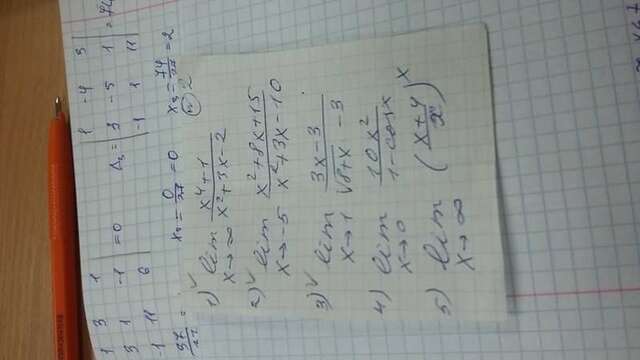 1 3 1
3 1 -1 = 0
-1 11 6
1 -4 3
Δ₃ 3 -5 1 = 74
-1 1 11
37/27 = x₂ = 0/27 = 0 x₃ = 74/27 = 2
№ 2
1) lim x→∞ (x⁴+1)/(x²+3x-2)
2) lim x→-5 (x²+8x+15)/(x²+3x-10)
3) lim x→1 (3x-3)/(√(8+x) - 3)
4) lim x→0 10x²/(1-cosx)
5) lim x→∞ ((x+4)/x)^x